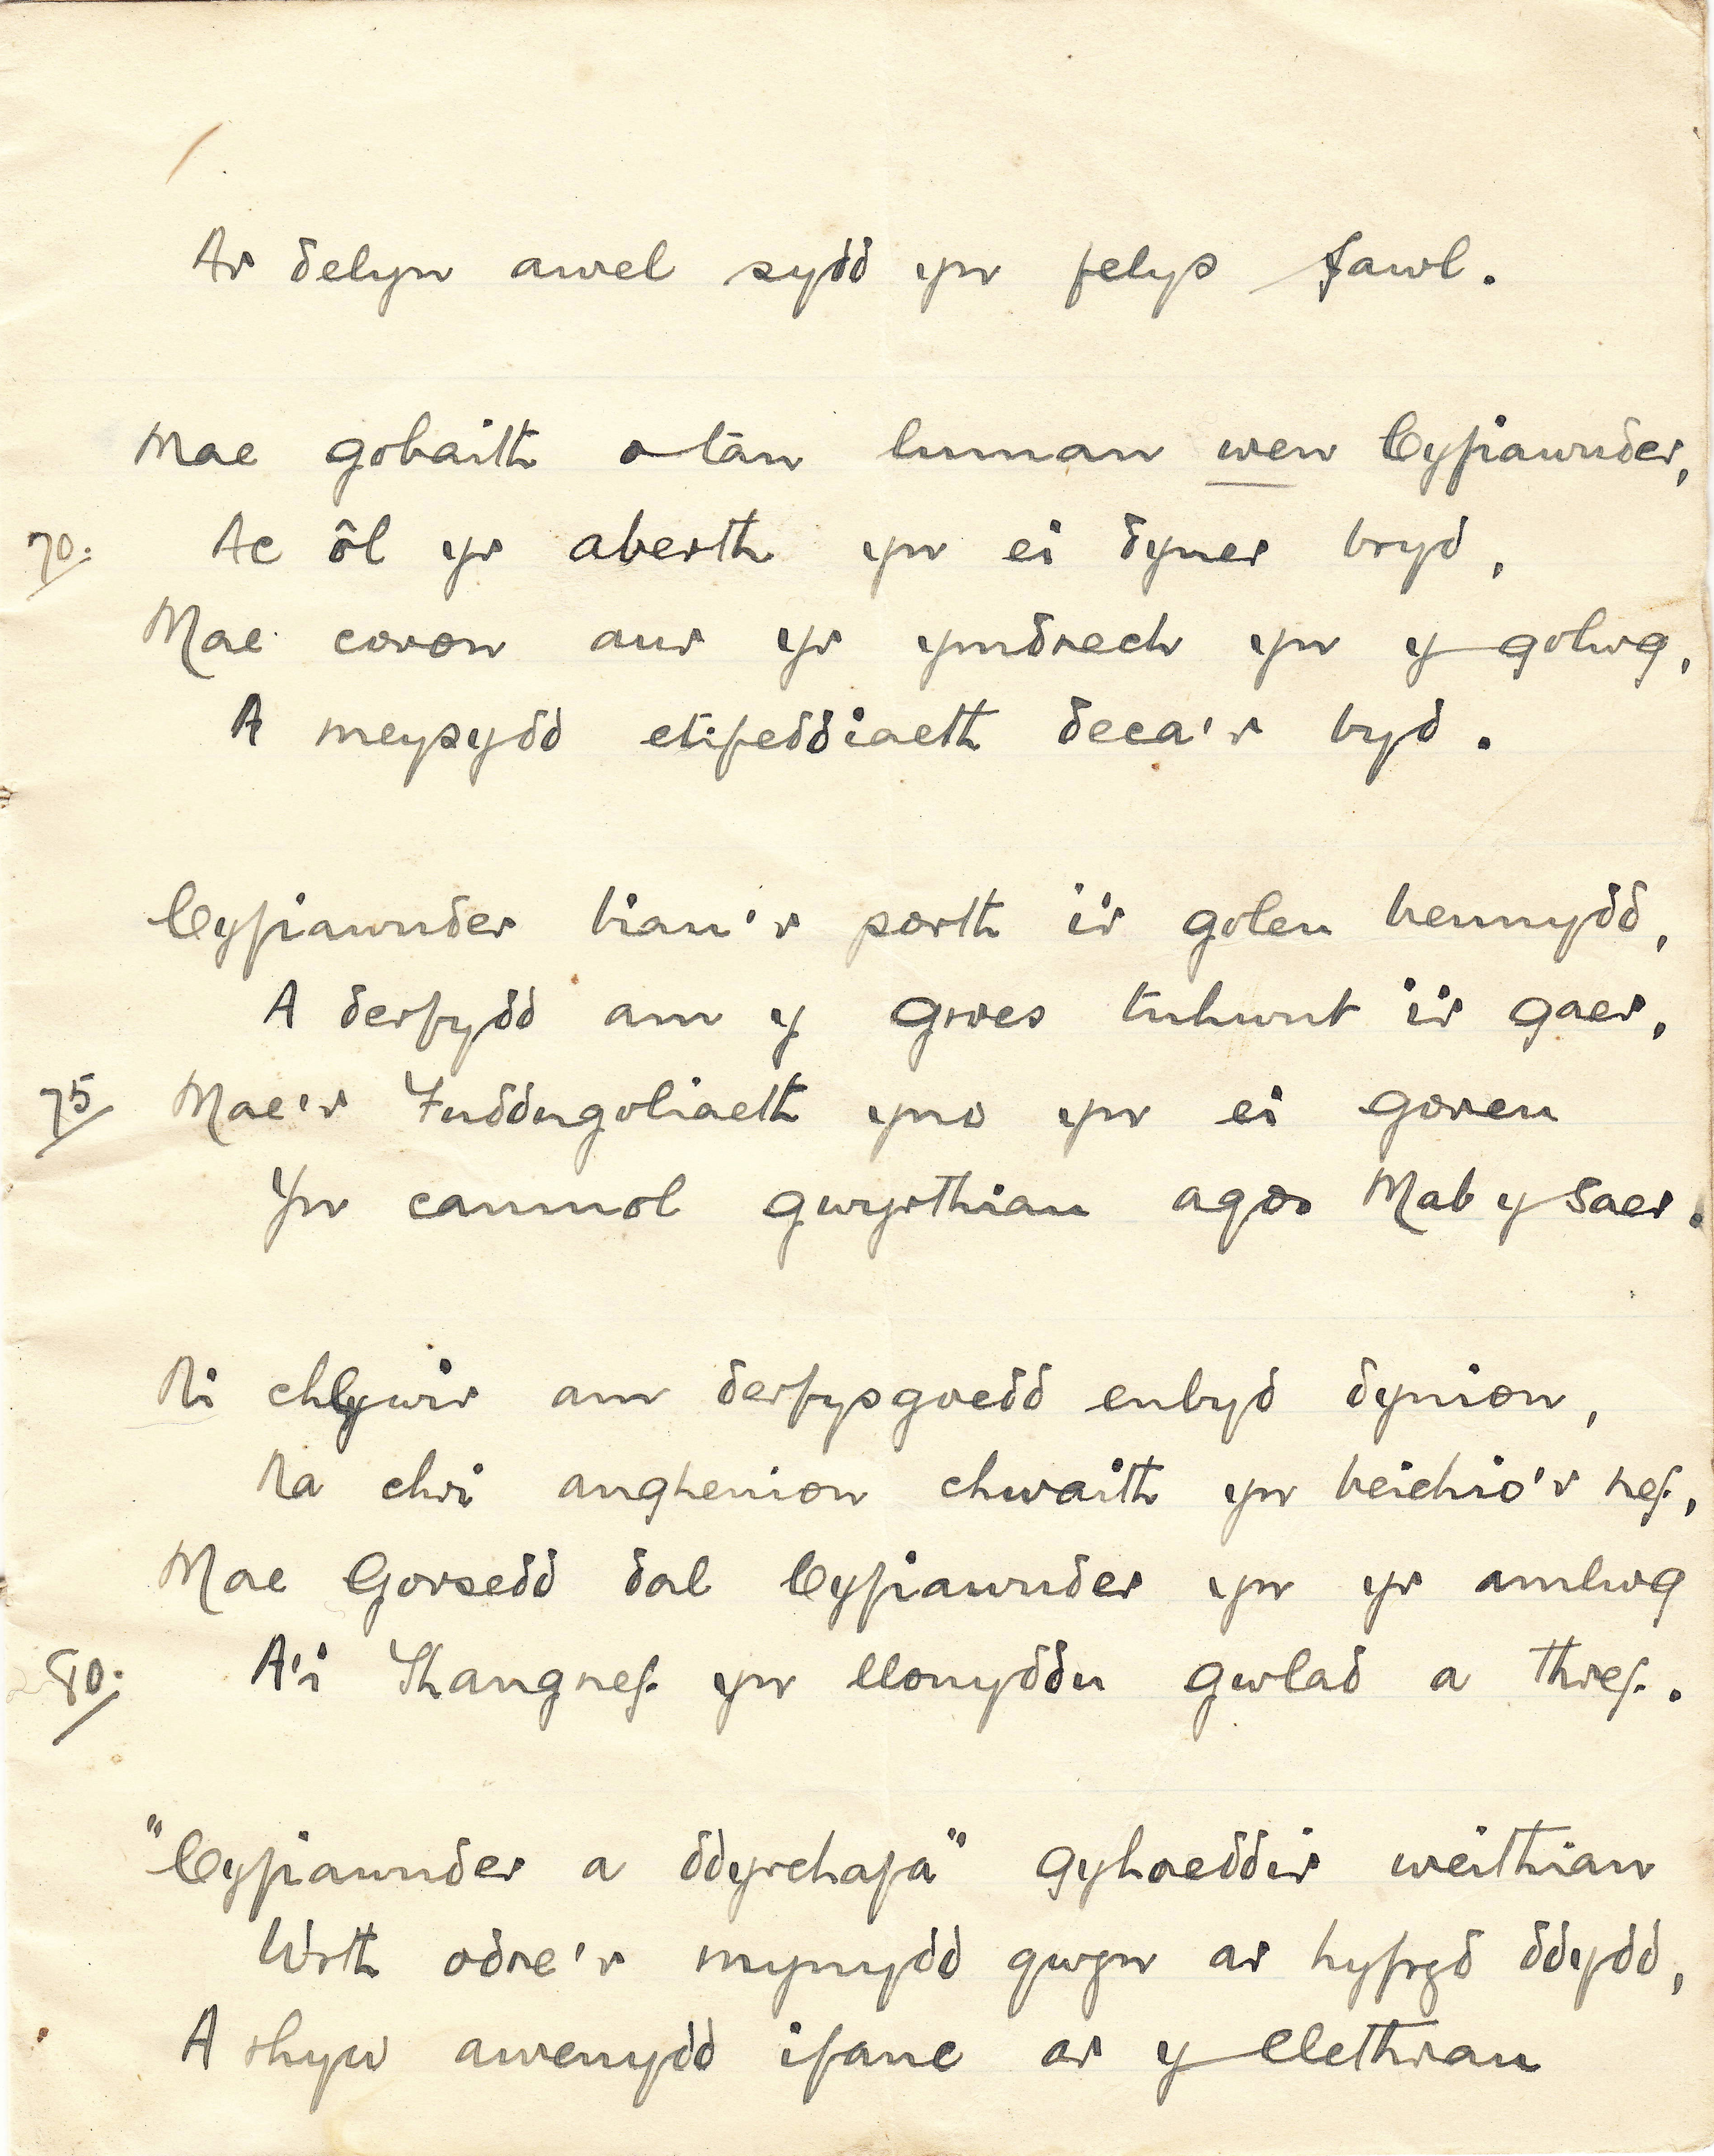 Ar delyn awel sydd yn felys fawl.
Mae gobaith o tān luman wen Cyfiawnder,
70. Ac ôl yr aberth yn ei dyner bryd,
Mae coron aur yr ymdrech yn y golwg,
A meysydd etifeddiaeth deca'r byd.
Cyfiawnder biau'r porth i'r goleu bennydd,
A derfydd am y gwres tuhwnt i'r gaer,
75 Mae'r Fuddugoliaeth yno yn ei goreu
Yn canmol gwyrthiau agos Mab y Saer.
Ni chlywir am derfysgoedd enbyd dynion,
Na chri anghenion chwaith yn beichio'r nef,
Mae Gorsedd dal Cyfiawnder yn yr amlwg
80. A'i Thangnef yn llonyddu gwlad a thref.
"Cyfiawnder a ddyrchafa" gyhoeddir weithian
Wrth odre'r mynydd gwyn ar hyfryd ddydd,
A rhyw awenydd ifanc ar y llethrau